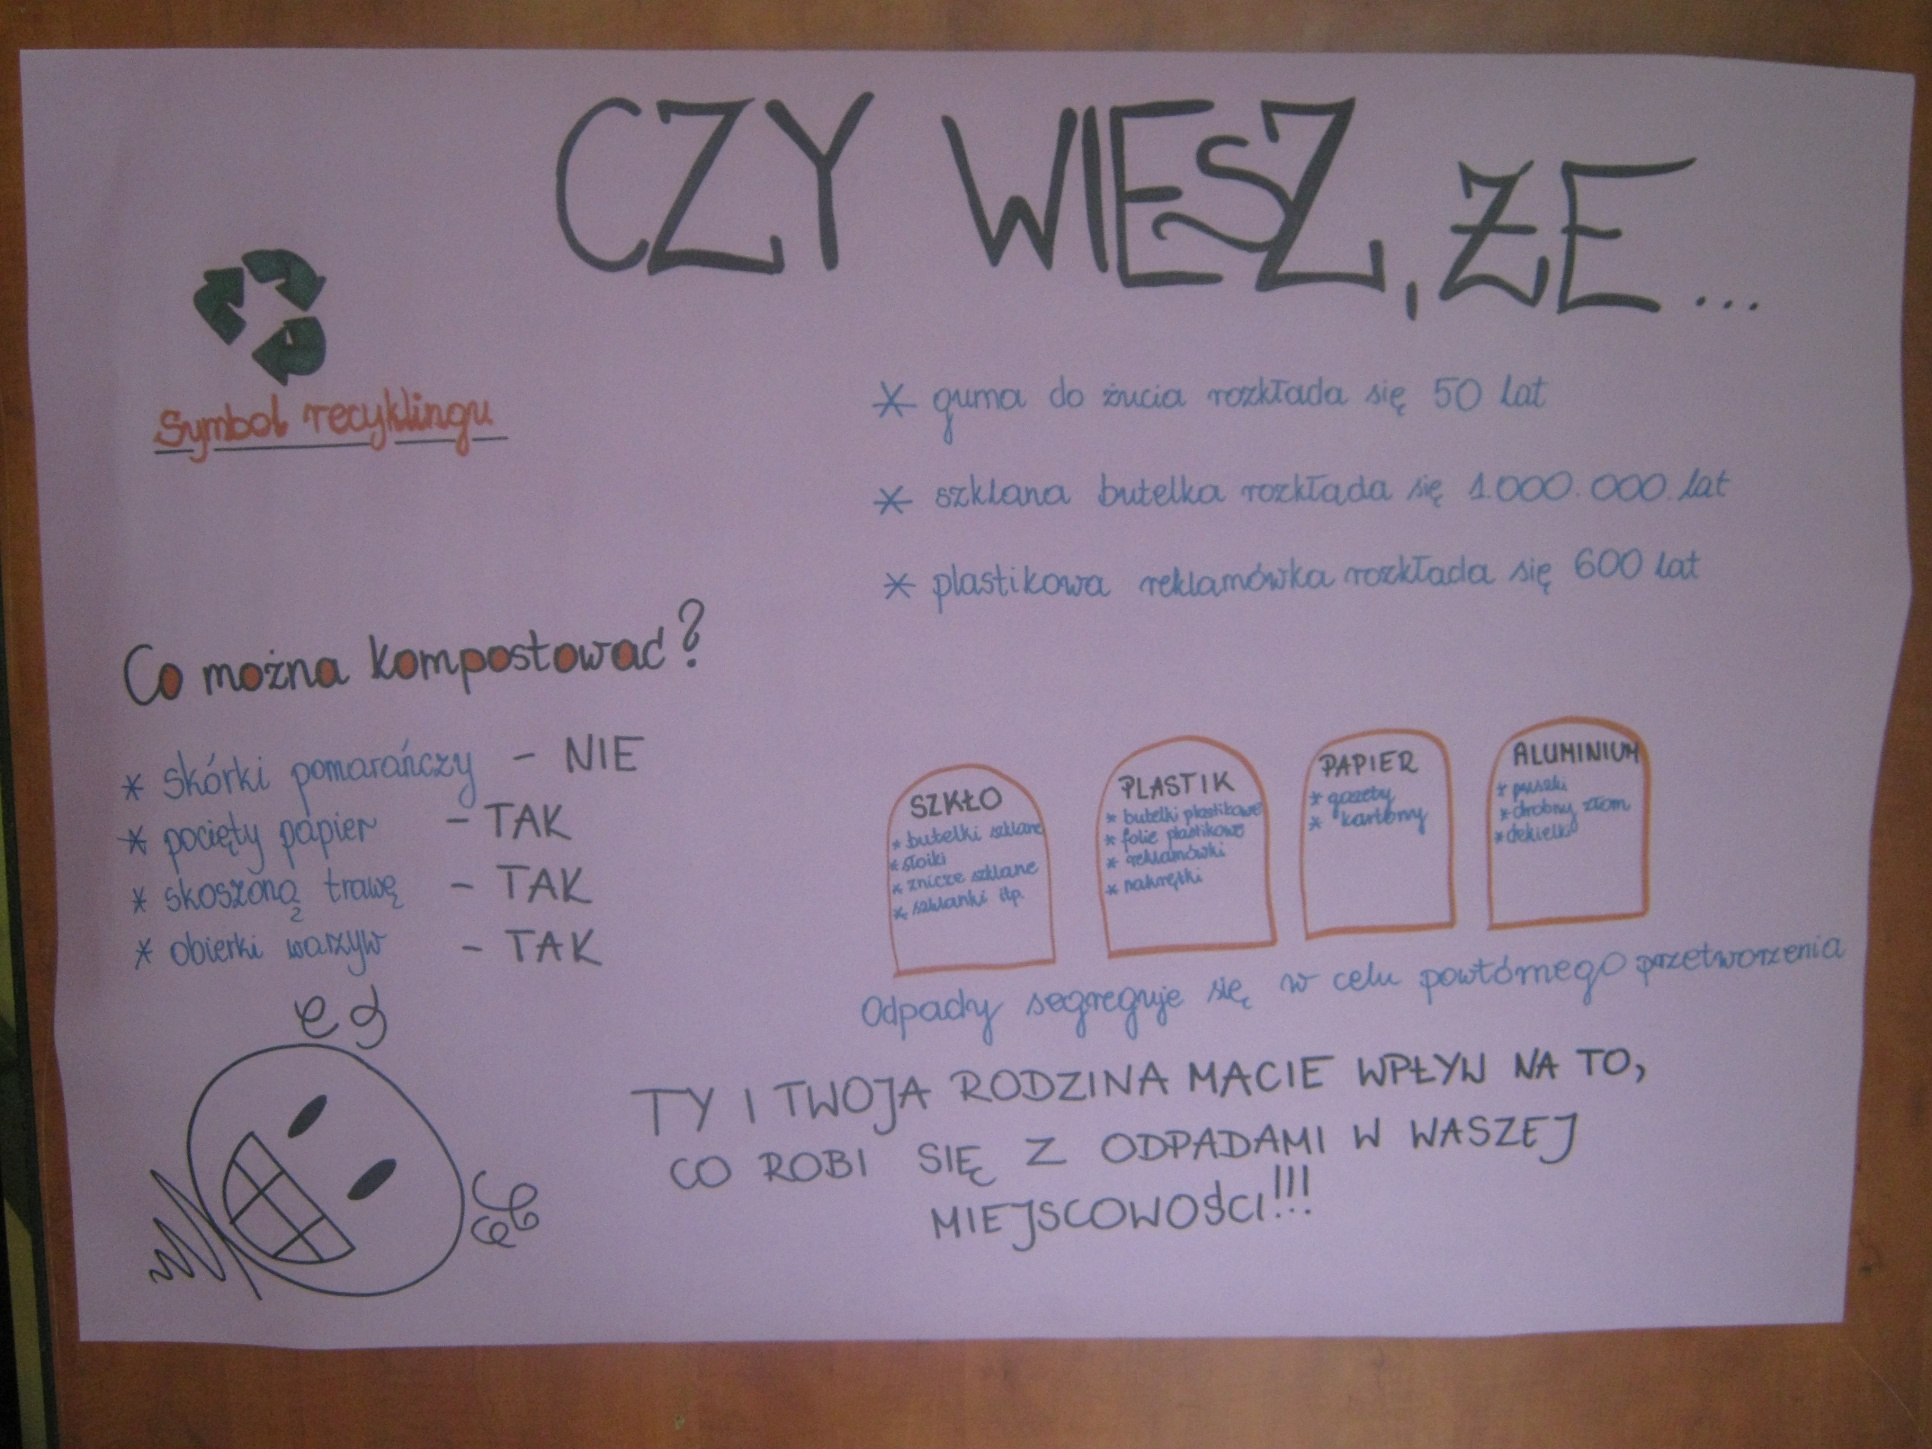 CZY WIESZ, ŻE...
Symbol recyklingu
* guma do żucia rozkłada się 50 lat
* szklana butelka rozkłada się 1.000.000 lat
* plastikowa reklamówka rozkłada się 600 lat
Co można kompostować?
* skórki pomarańczy - NIE
* pocięty papier - TAK
* skoszoną trawę - TAK
* obierki warzyw - TAK
SZKŁO
* butelki szklane
* słoiki
* znicze szklane
* szklanki itp.
PLASTIK
* butelki plastikowe
* folie plastikowe
* reklamówki
* nakrętki
PAPIER
* gazety
* kartony
ALUMINIUM
* puszki
* drobny złom
* dekielki
Odpady segreguje się w celu powtórnego przetworzenia
TY I TWOJA RODZINA MACIE WPŁYW NA TO,
CO ROBI SIĘ Z ODPADAMI W WASZEJ
MIEJSCOWOŚCI!!!